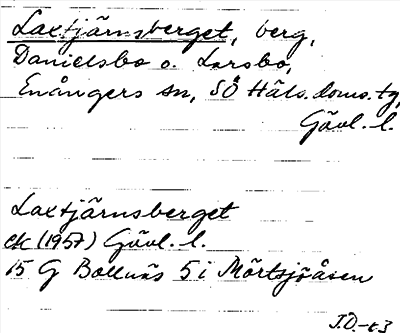 Laxtjärnsberget, berg,
Danielsbo o. Larsbo,
Enångers sn, SÖ Häls. doms. tg,
Gävl. l.
Laxtjärnsberget
ek (1957) Gävl. l.
15 G Bollnäs 5 i Mörtsjöåsen
J.D.-63